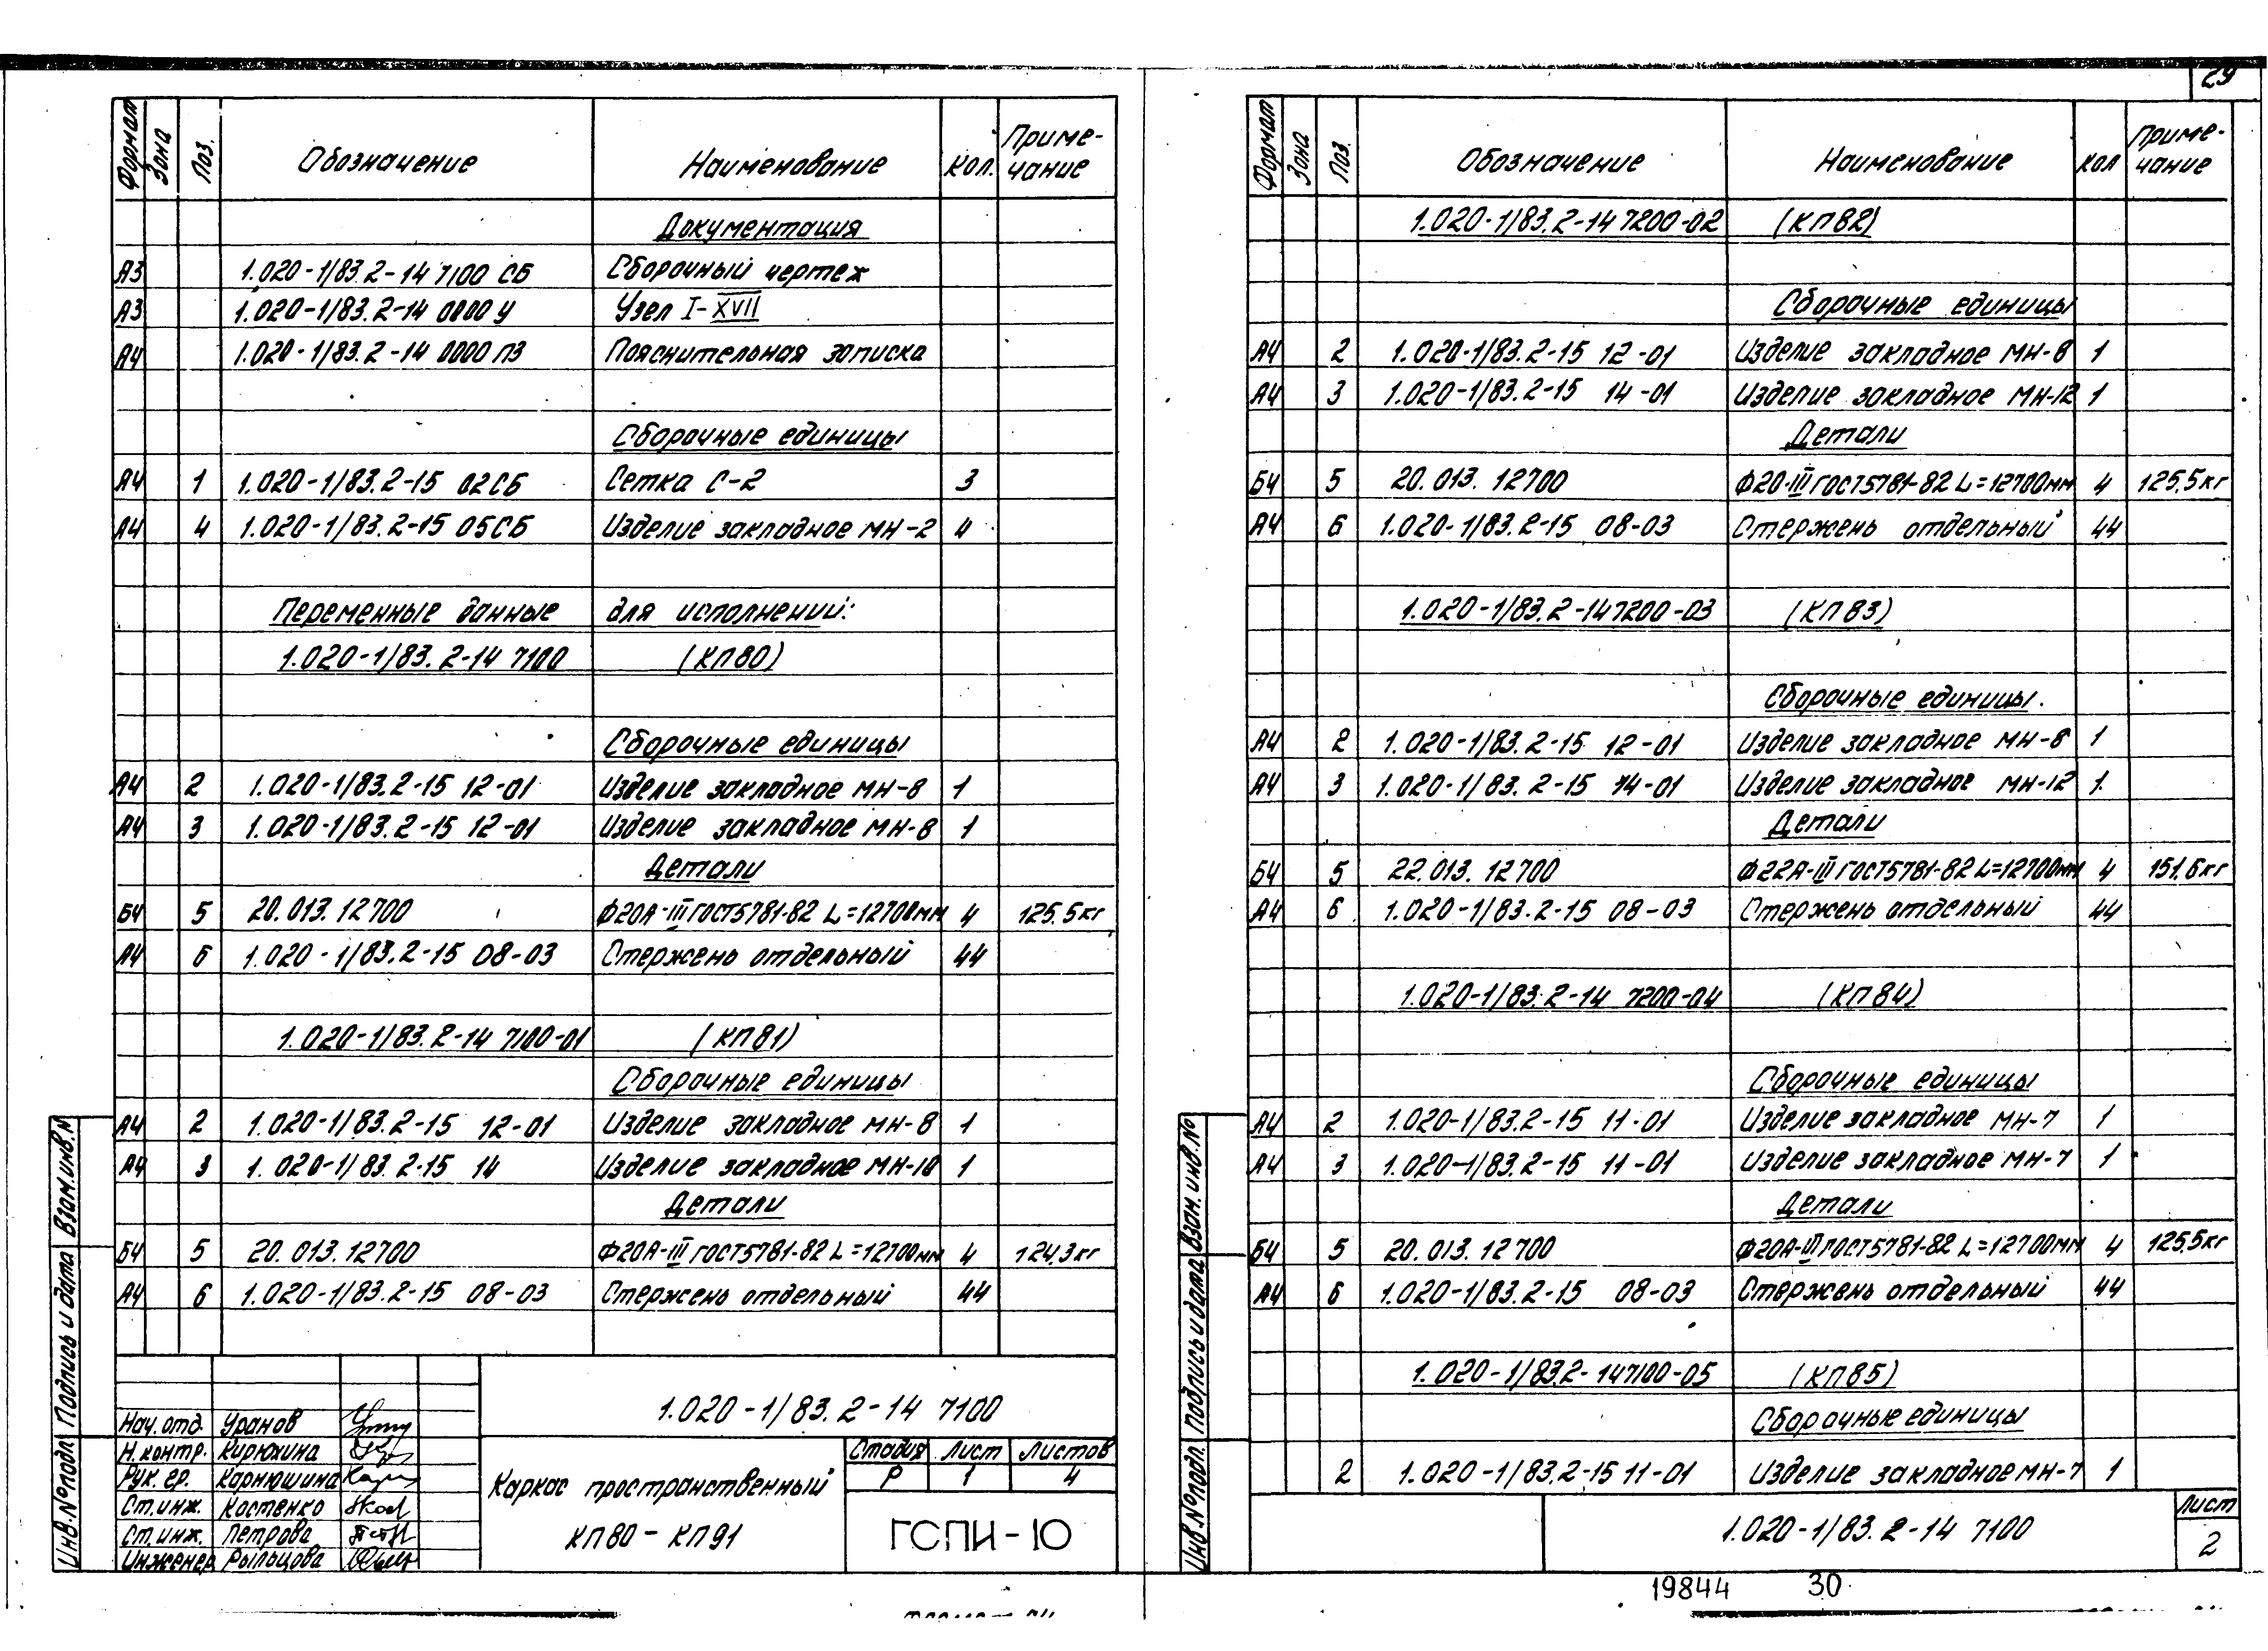 29
Формат Зона Поз. Обозначение Наименование Кол. Приме-
чание
Документация
А3 1.020-1/83.2-14 7100 СБ Сборочный чертеж
А3 1.020-1/83.2-14 0000 У Узел I-XVII
А4 1.020-1/83.2-14 0000 ПЗ Пояснительная записка
Сборочные единицы
А4 1 1.020-1/83.2-15 02СБ Сетка С-2 3
А4 4 1.020-1/83.2-15 05СБ Изделие закладное МН-2 4
Переменные данные для исполнений:
1.020-1/83.2-14 7100 (КП80)
Сборочные единицы
А4 2 1.020-1/83.2-15 12-01 Изделие закладное МН-8 1
А4 3 1.020-1/83.2-15 12-01 Изделие закладное МН-8 1
Детали
Б4 5 20.013.12700 Ф20А-III ГОСТ5781-82 L=12700мм 4 125.5кг
А4 6 1.020-1/83.2-15 08-03 Стержень отдельный 44
1.020-1/83.2-14 7100-01 (КП81)
Сборочные единицы
А4 2 1.020-1/83.2-15 12-01 Изделие закладное МН-8 1
А4 3 1.020-1/83.2-15 14 Изделие закладное МН-10 1
Детали
Б4 5 20.013.12700 Ф20А-III ГОСТ5781-82 L=12700мм 4 124,3кг
А4 6 1.020-1/83.2-15 08-03 Стержень отдельный 44
Инв.№подл Подпись и дата Взам.инв.№
1.020-1/83.2-14 7100
Нач.отд. Уранов
Н.контр. Кирюхина
Рук.гр. Карнюшина
Ст.инж. Костенко
Ст.инж. Петрова
Инженер Рыльцова
Каркас пространственный
КП80-КП91
Стадия Лист Листов
Р 1 4
ГСПИ-10
Формат Зона Поз. Обозначение Наименование Кол Приме-
чание
1.020-1/83.2-14 7200-02 (КП82)
Сборочные единицы
А4 2 1.020-1/83.2-15 12-01 Изделие закладное МН-8 1
А4 3 1.020-1/83.2-15 14-01 Изделие закладное МН-12 1
Детали
Б4 5 20.013.12700 Ф20-III ГОСТ5781-82 L=12700мм 4 125,5кг
А4 6 1.020-1/83.2-15 08-03 Стержень отдельный 44
1.020-1/83.2-14 7200-03 (КП83)
Сборочные единицы.
А4 2 1.020-1/83.2-15 12-01 Изделие закладное МН-8 1
А4 3 1.020-1/83.2-15 14-01 Изделие закладное МН-12 1
Детали
Б4 5 22.013.12700 Ф22А-III ГОСТ5781-82 L=12700мм 4 151.6кг
А4 6 1.020-1/83.2-15 08-03 Стержень отдельный 44
1.020-1/83.2-14 7200-04 (КП84)
Сборочные единицы
А4 2 1.020-1/83.2-15 11-01 Изделие закладное МН-7 1
А4 3 1.020-1/83.2-15 11-01 Изделие закладное МН-7 1
Детали
Б4 5 20.013.12700 Ф20А-III ГОСТ5781-82 L=12700мм 4 125,5кг
А4 6 1.020-1/83.2-15 08-03 Стержень отдельный 44
1.020-1/83.2-14 7100-05 (КП85)
Сборочные единицы
2 1.020-1/83.2-15 11-01 Изделие закладное МН-7 1
Инв.№подл. Подпись и дата Взам.инв.№
1.020-1/83.2-14 7100
Лист
2
19844 30